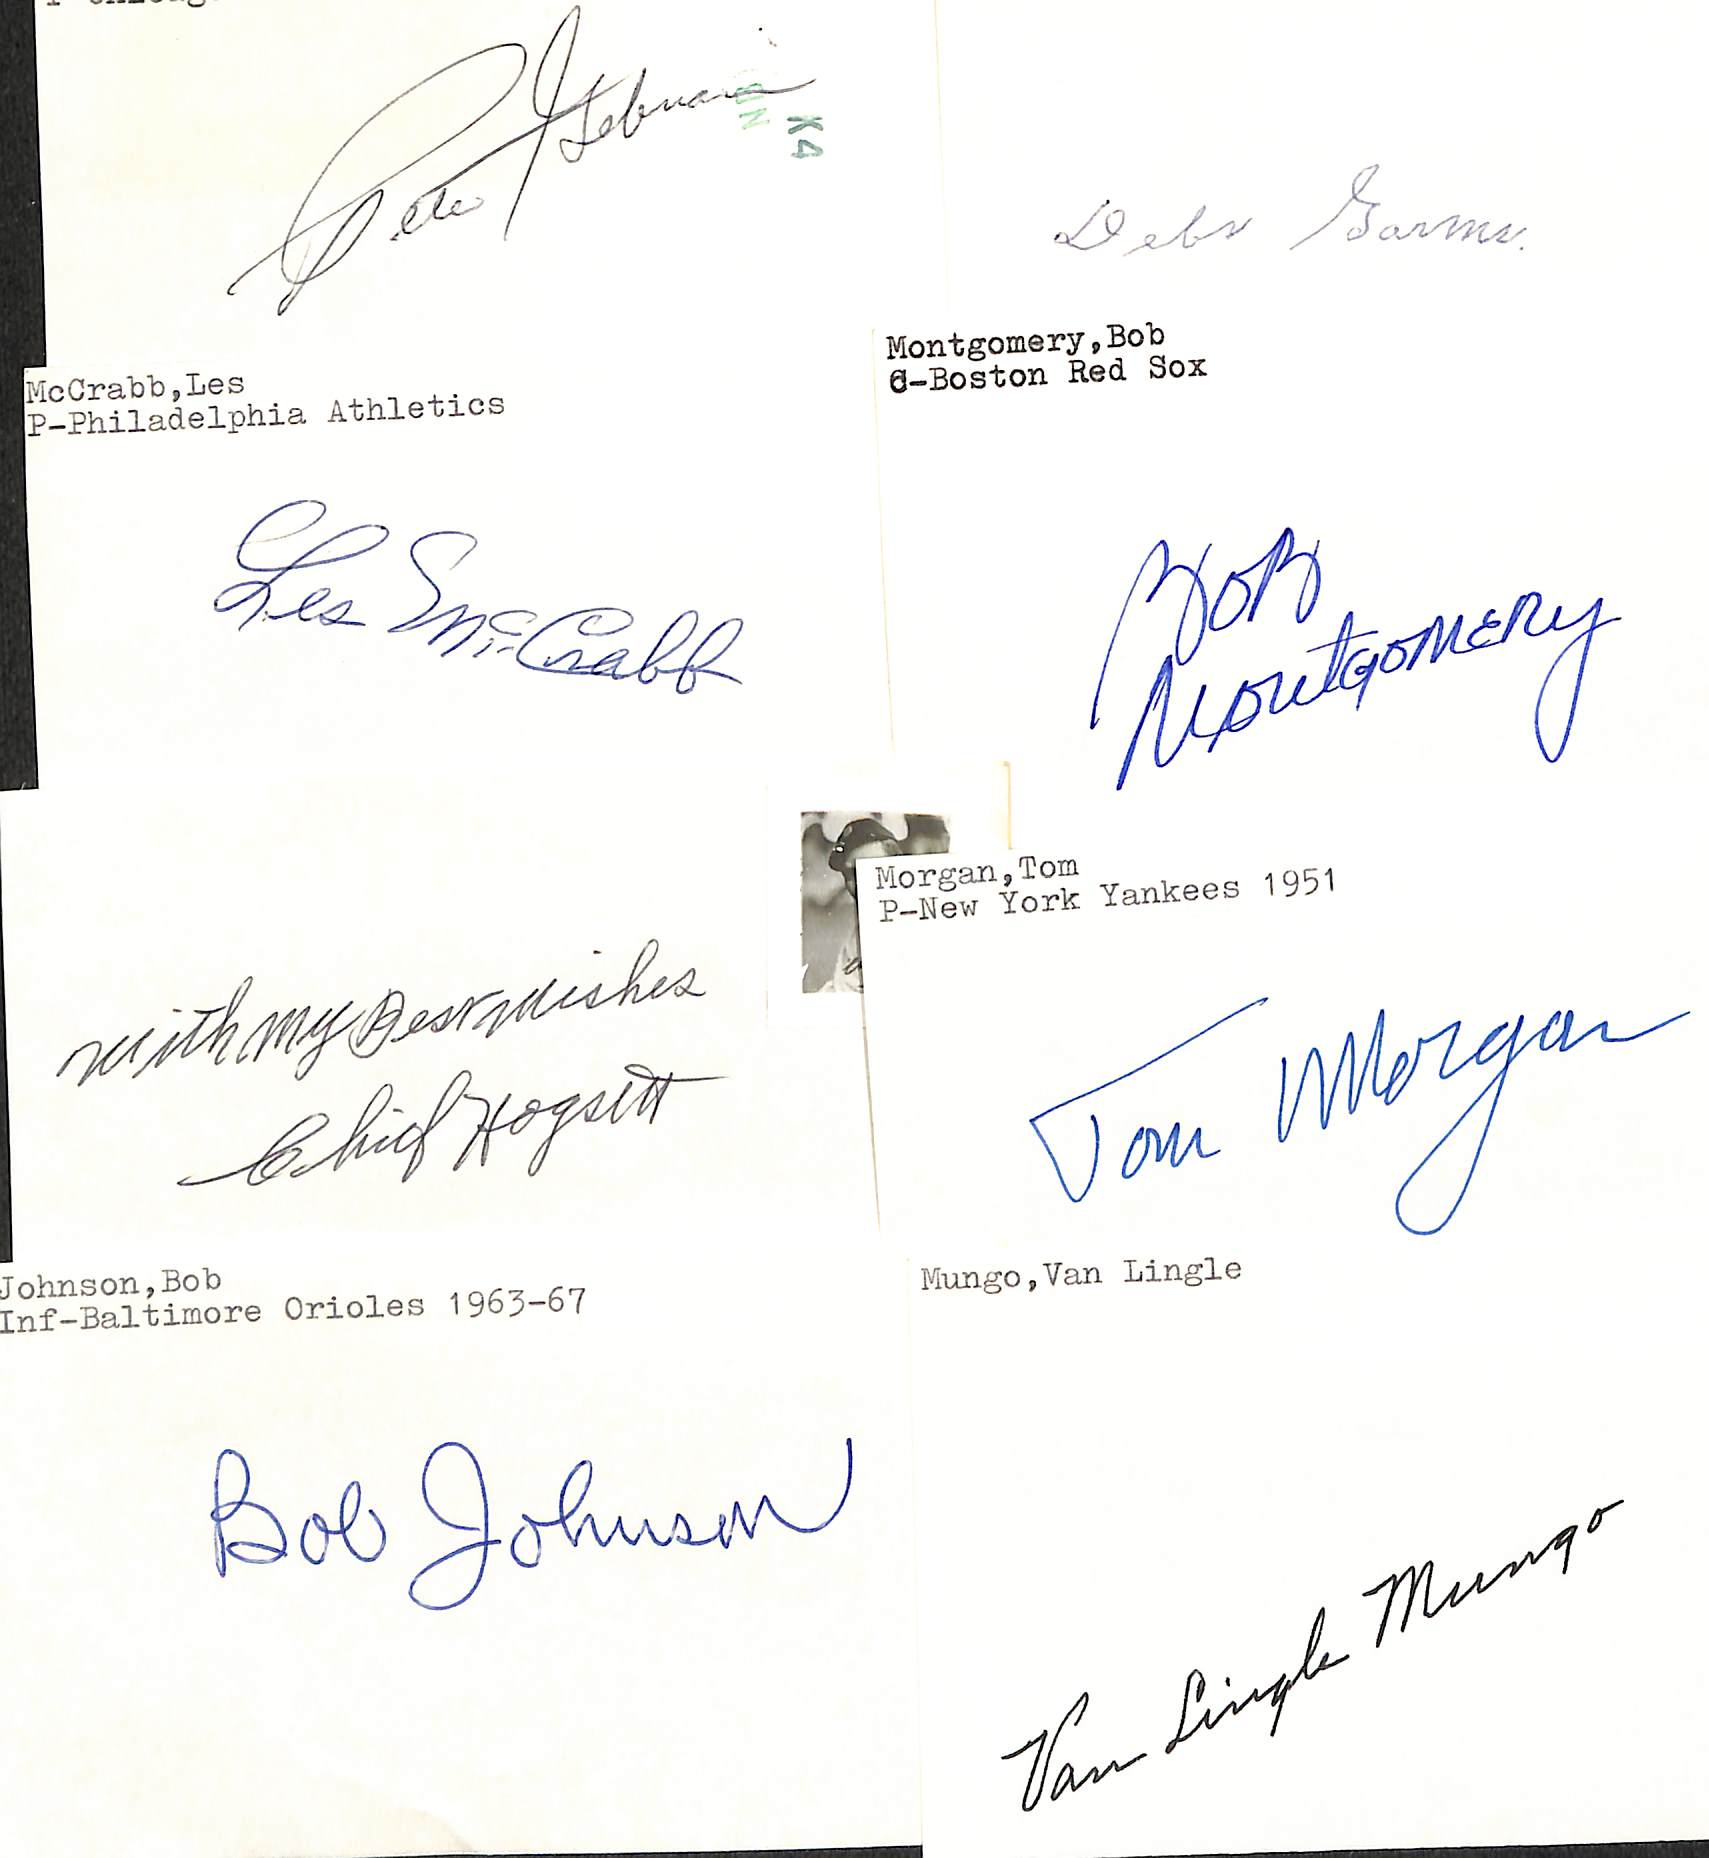 Debs Garms.
McCrabb,Les
P-Philadelphia Athletics
Les McCrabb
Montgomery,Bob
C-Boston Red Sox
Bob
Montgomery
With my Best Wishes
Chief Hogsett
Morgan,Tom
P-New York Yankees 1951
Tom Morgan
Johnson,Bob
Inf-Baltimore Orioles 1963-67
Bob Johnson
Mungo,Van Lingle
Van Lingle Mungo
K4